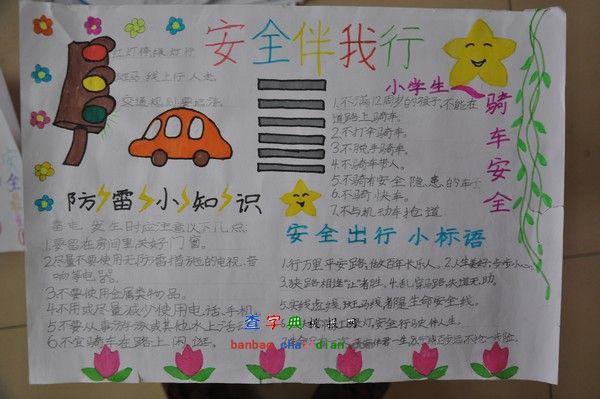 安全伴我行
红灯停绿灯行
斑马线上行人走
交通规则要记活
小学生
骑车安全
1.不满12周岁的孩子,不能在
道路上骑车。
2.不打伞骑车。
3.不脱手骑车。
4.不骑车带人。
5.不骑有安全隐患的车
6.不骑快车。
7.不与机动车抢道
防雷小知识
雷电发生时应注意以下几点:
1.要留在房间里关好门窗。
2.尽量不要使用无防雷措施的电视、音
响等电器。
3.不要使用金属类物品。
4.不用或尽量减少使用电话、手机。
5.不要从事游泳或其他水上活
6.不宜骑车在路上闲逛。
安全出行小标语
1.行万里平安路,做百年长乐人。2.人生美好,步步小心。
3.狭路相逢"让"者胜。
5.实线虚线斑马线都是生命安全线。
查字典 板报网
banbao.chazidian.com